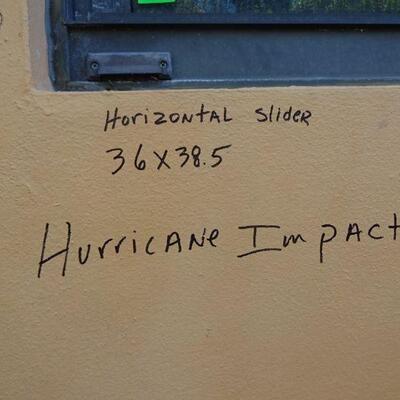 Horizontal Slider
36x38.5
Hurricane Impact